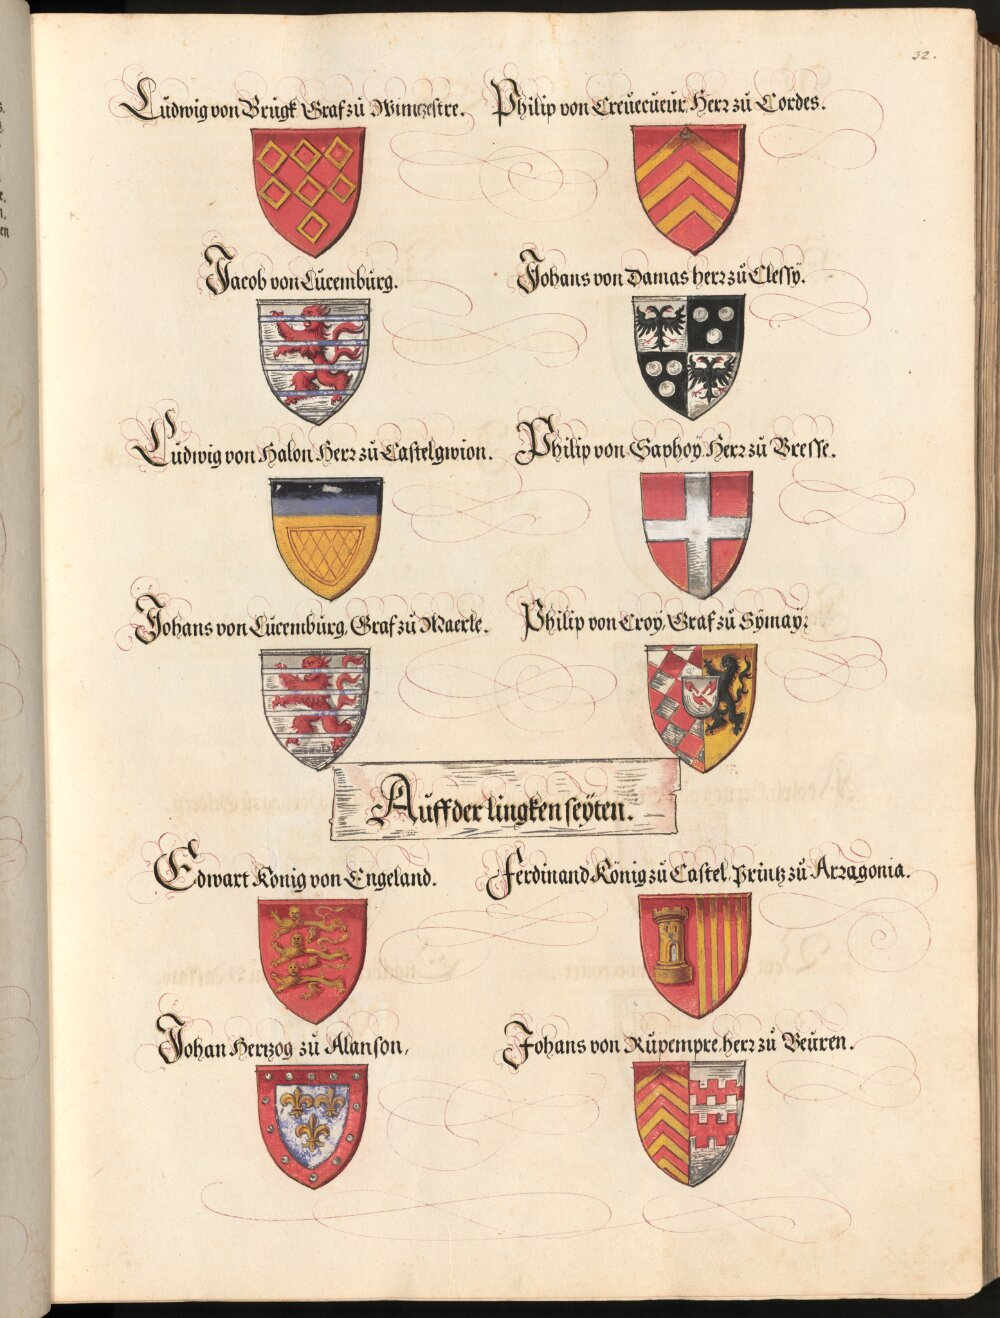 32.
Ludwig von Brugk Graf zů Wintzestre.
Philip von Creuecueur, Herr zů Cordes.
Jacob von Lůcemburg.
Johans von Damas herr zů Clessy.
Ludwig von Halon Herr zů Castelgwion.
Philip von Saphoy, Herr zů Bresse.
Johans von Lůcemburg, Graf zů Maerle.
Philip von Croy, Graf zů Symay.
Auff der lingken seyten.
Edwart König von Engeland.
Ferdinand König zů Castel, Printz zů Arragonia.
Johan Hertzog zů Alanson,
Johans von Rupempre, herr zů Beuren.